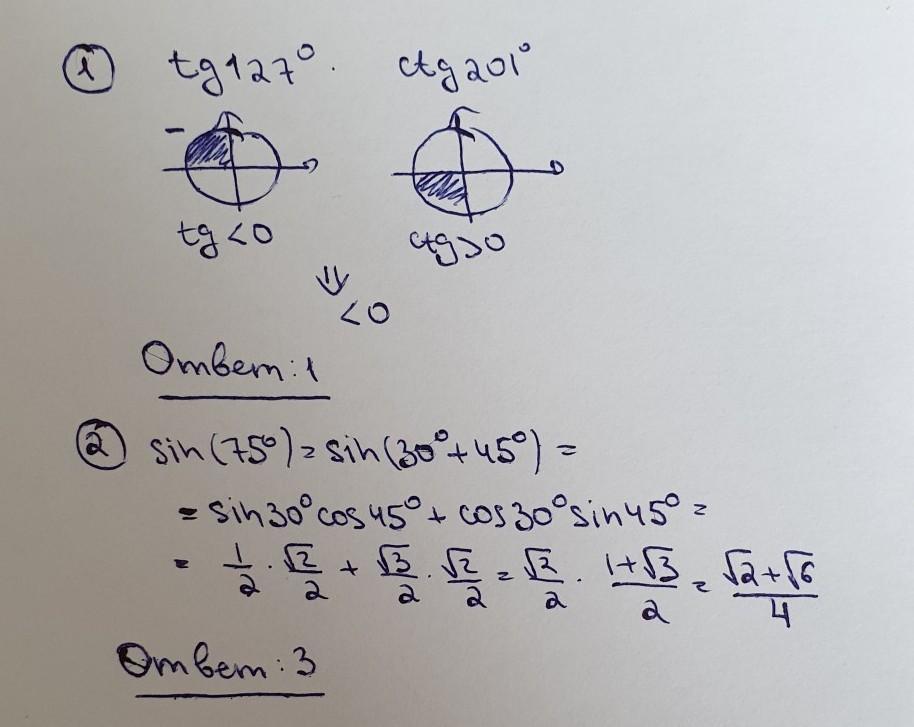 ① tg127° · ctg201°
−
tg<0 ctg>0
⇓
<0
Ответ: 1
② sin(75°) = sin(30°+45°) =
= sin30°cos45° + cos30°sin45° =
= 1/2 · √2/2 + √3/2 · √2/2 = √2/2 · (1+√3)/2 = (√2+√6)/4
Ответ: 3